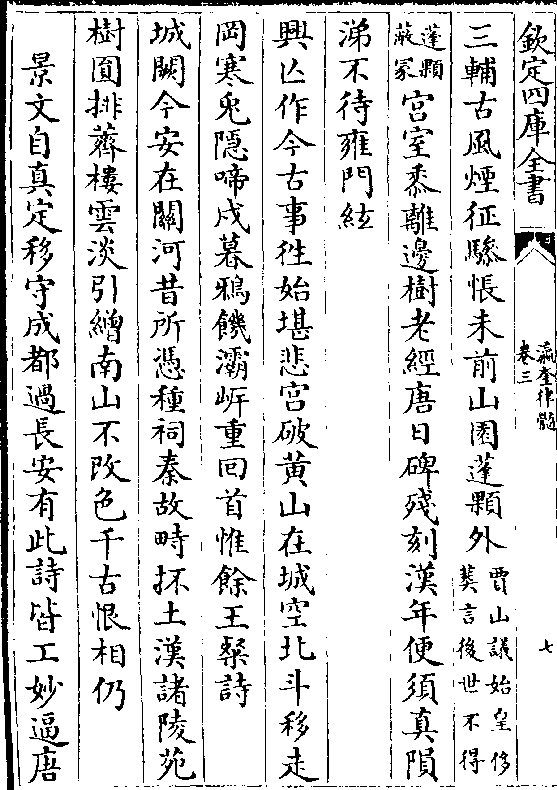 欽定四庫全書
瀛奎律髓
卷三
七
三輔古風煙征驂悵未前山園蓬顆外
賈山議始皇侈
葬言後世不得
蓬顆
蔽冢
宮室黍離邊樹老經唐日碑殘刻漢年便須真隕
涕不待雍門絃
興亡作今古事徃始堪悲宮破黄山在城空北斗移走
岡寒兎隱啼戍暮鴉饑灞岸重回首惟餘王粲詩
城闕今安在關河昔所憑種祠秦故畤抔土漢諸陵苑
樹圓排薺樓雲淡引繒南山不改色千古恨相仍
景文自真定移守成都過長安有此詩皆工妙逼唐